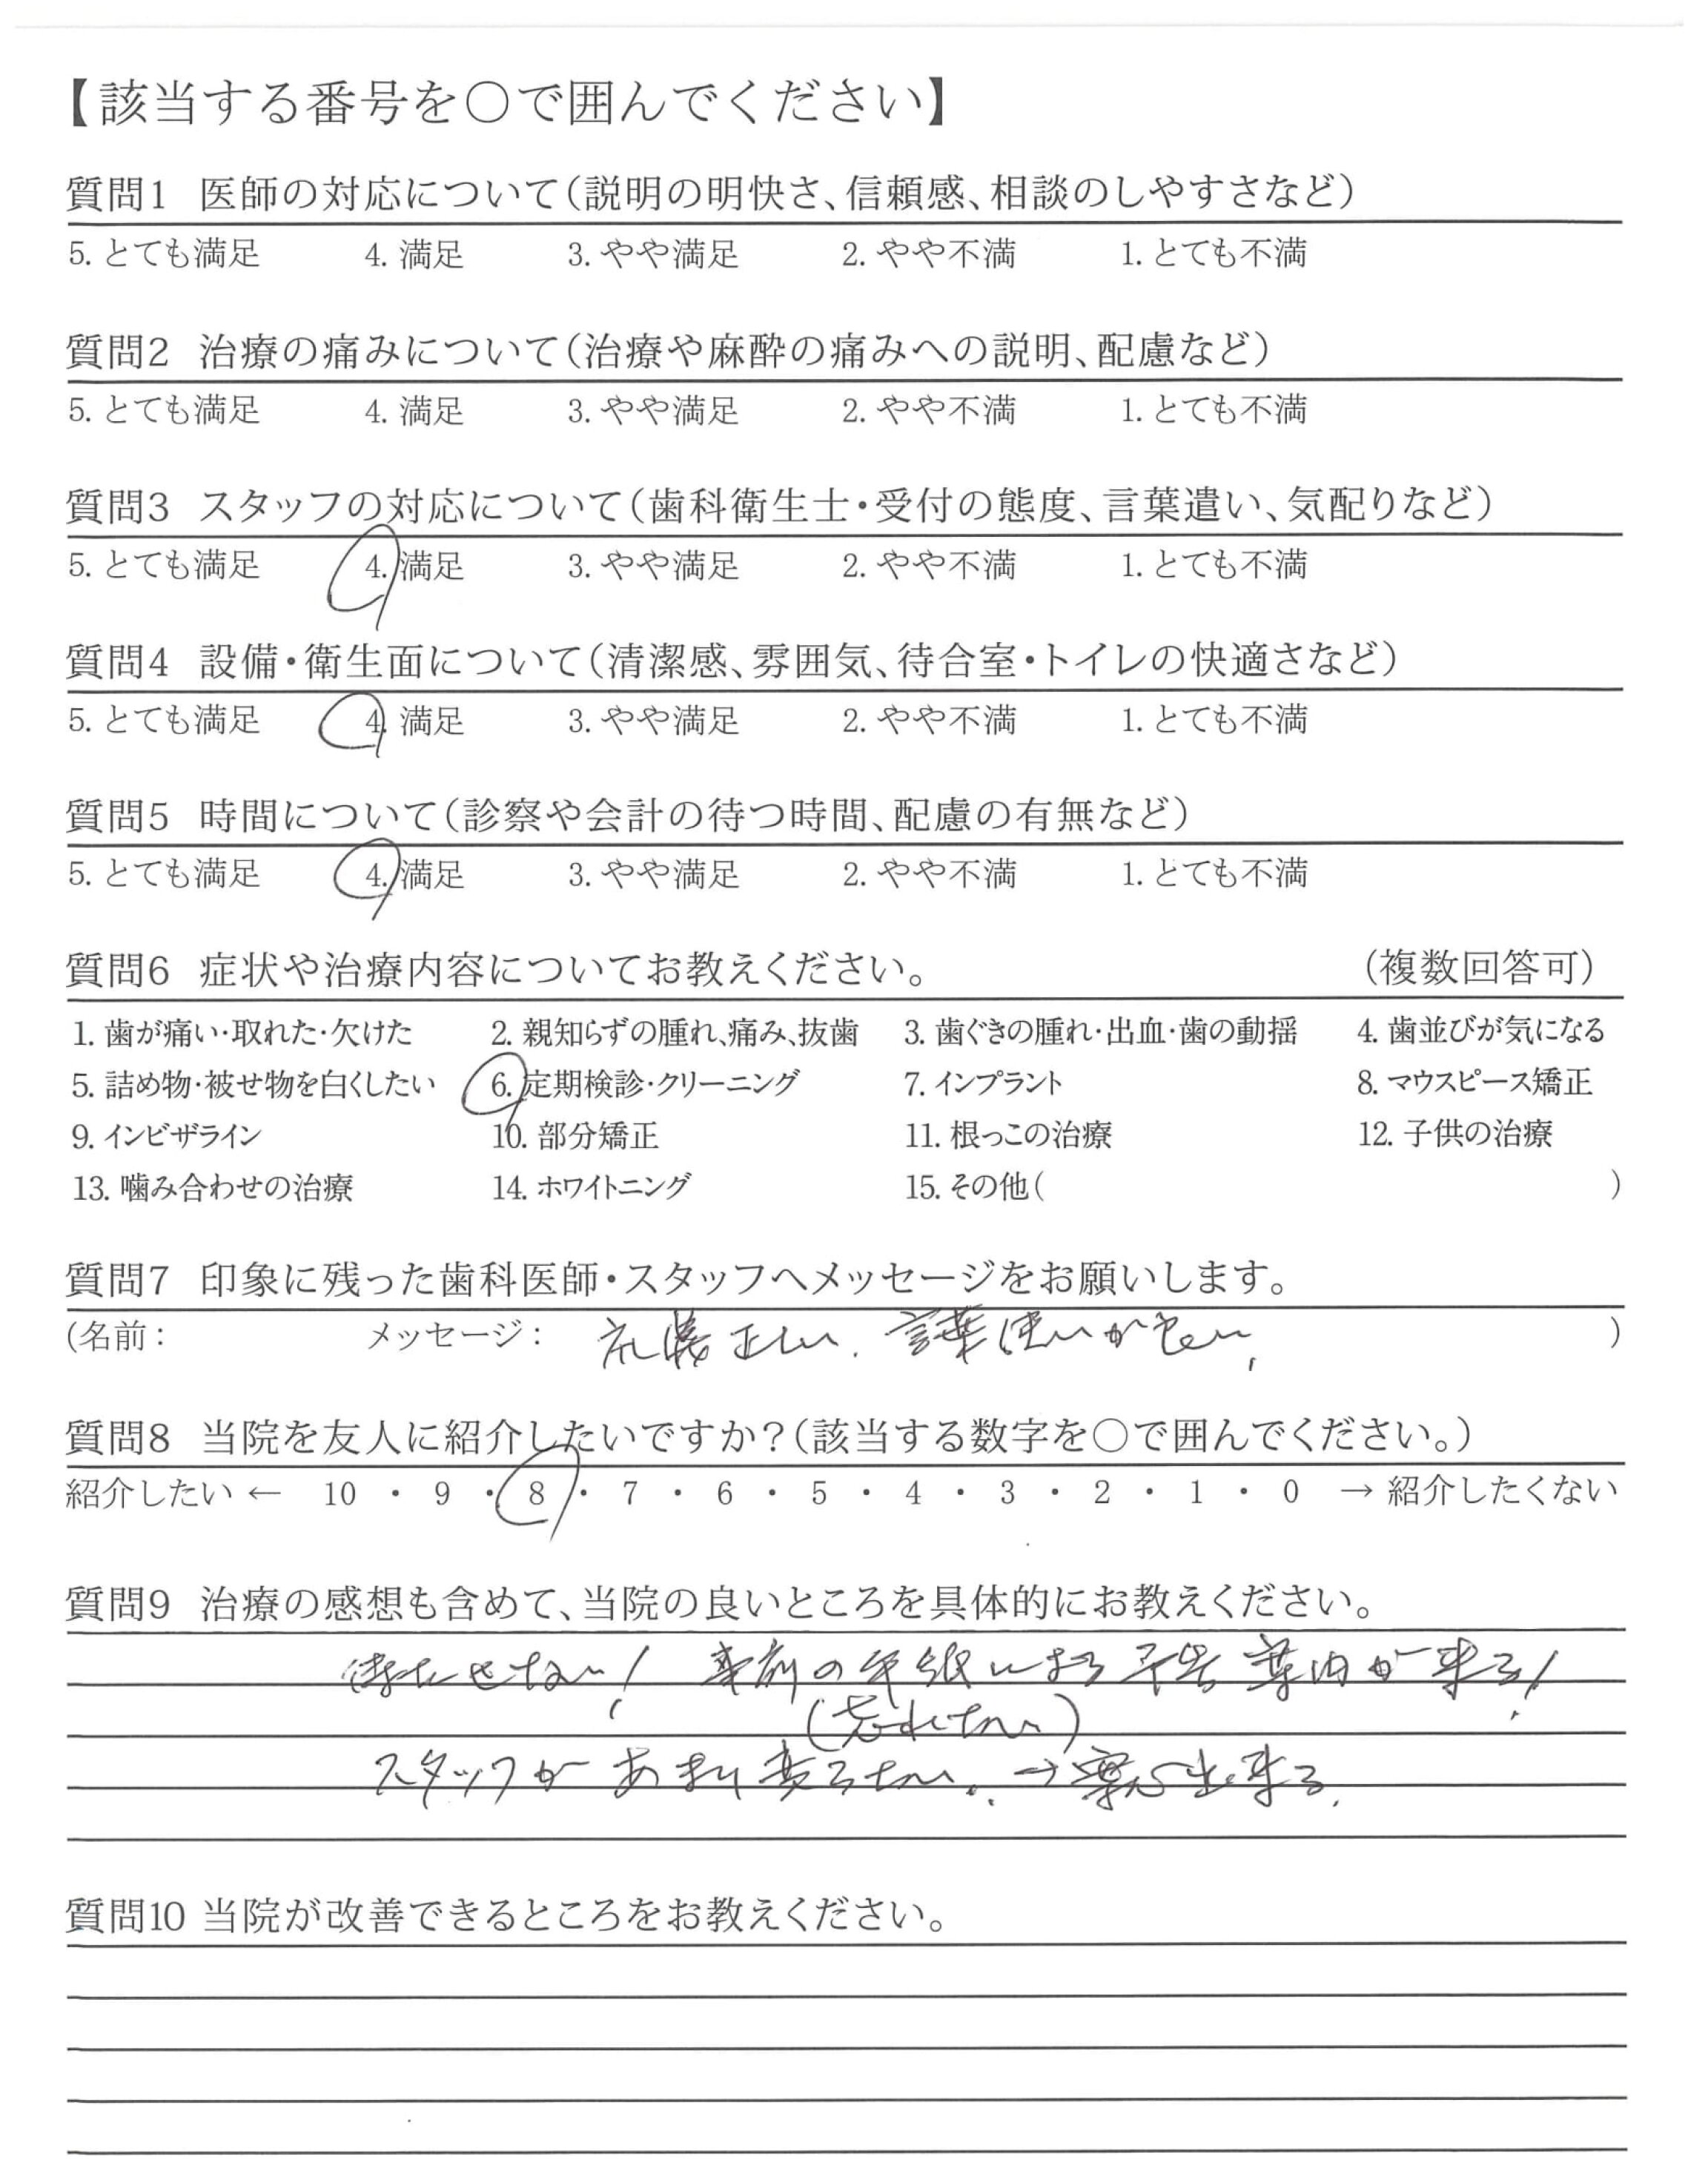 【該当する番号を〇で囲んでください】
質問1 医師の対応について(説明の明快さ、信頼感、相談のしやすさなど)
5. とても満足 4. 満足 3. やや満足 2. やや不満 1. とても不満
質問2 治療の痛みについて(治療や麻酔の痛みへの説明、配慮など)
5. とても満足 4. 満足 3. やや満足 2. やや不満 1. とても不満
質問3 スタッフの対応について(歯科衛生士・受付の態度、言葉遣い、気配りなど)
5. とても満足 4. 満足 3. やや満足 2. やや不満 1. とても不満
質問4 設備・衛生面について(清潔感、雰囲気、待合室・トイレの快適さなど)
5. とても満足 4. 満足 3. やや満足 2. やや不満 1. とても不満
質問5 時間について(診察や会計の待つ時間、配慮の有無など)
5. とても満足 4. 満足 3. やや満足 2. やや不満 1. とても不満
質問6 症状や治療内容についてお教えください。 (複数回答可)
1. 歯が痛い・取れた・欠けた 2. 親知らずの腫れ、痛み、抜歯 3. 歯ぐきの腫れ・出血・歯の動揺 4. 歯並びが気になる
5. 詰め物・被せ物を白くしたい 6. 定期検診・クリーニング 7. インプラント 8. マウスピース矯正
9. インビザライン 10. 部分矯正 11. 根っこの治療 12. 子供の治療
13. 噛み合わせの治療 14. ホワイトニング 15. その他( )
質問7 印象に残った歯科医師・スタッフへメッセージをお願いします。
(名前: メッセージ: 礼儀正しい. 言葉使いが良い. )
質問8 当院を友人に紹介したいですか?(該当する数字を〇で囲んでください。)
紹介したい ← 10 ・ 9 ・ 8 ・ 7 ・ 6 ・ 5 ・ 4 ・ 3 ・ 2 ・ 1 ・ 0 → 紹介したくない
質問9 治療の感想も含めて、当院の良いところを具体的にお教えください。
待たせない! 事前の手紙による予告案内が来る!
(忘れない)
スタッフがあまり変らない. → 安心出来る.
質問10 当院が改善できるところをお教えください。